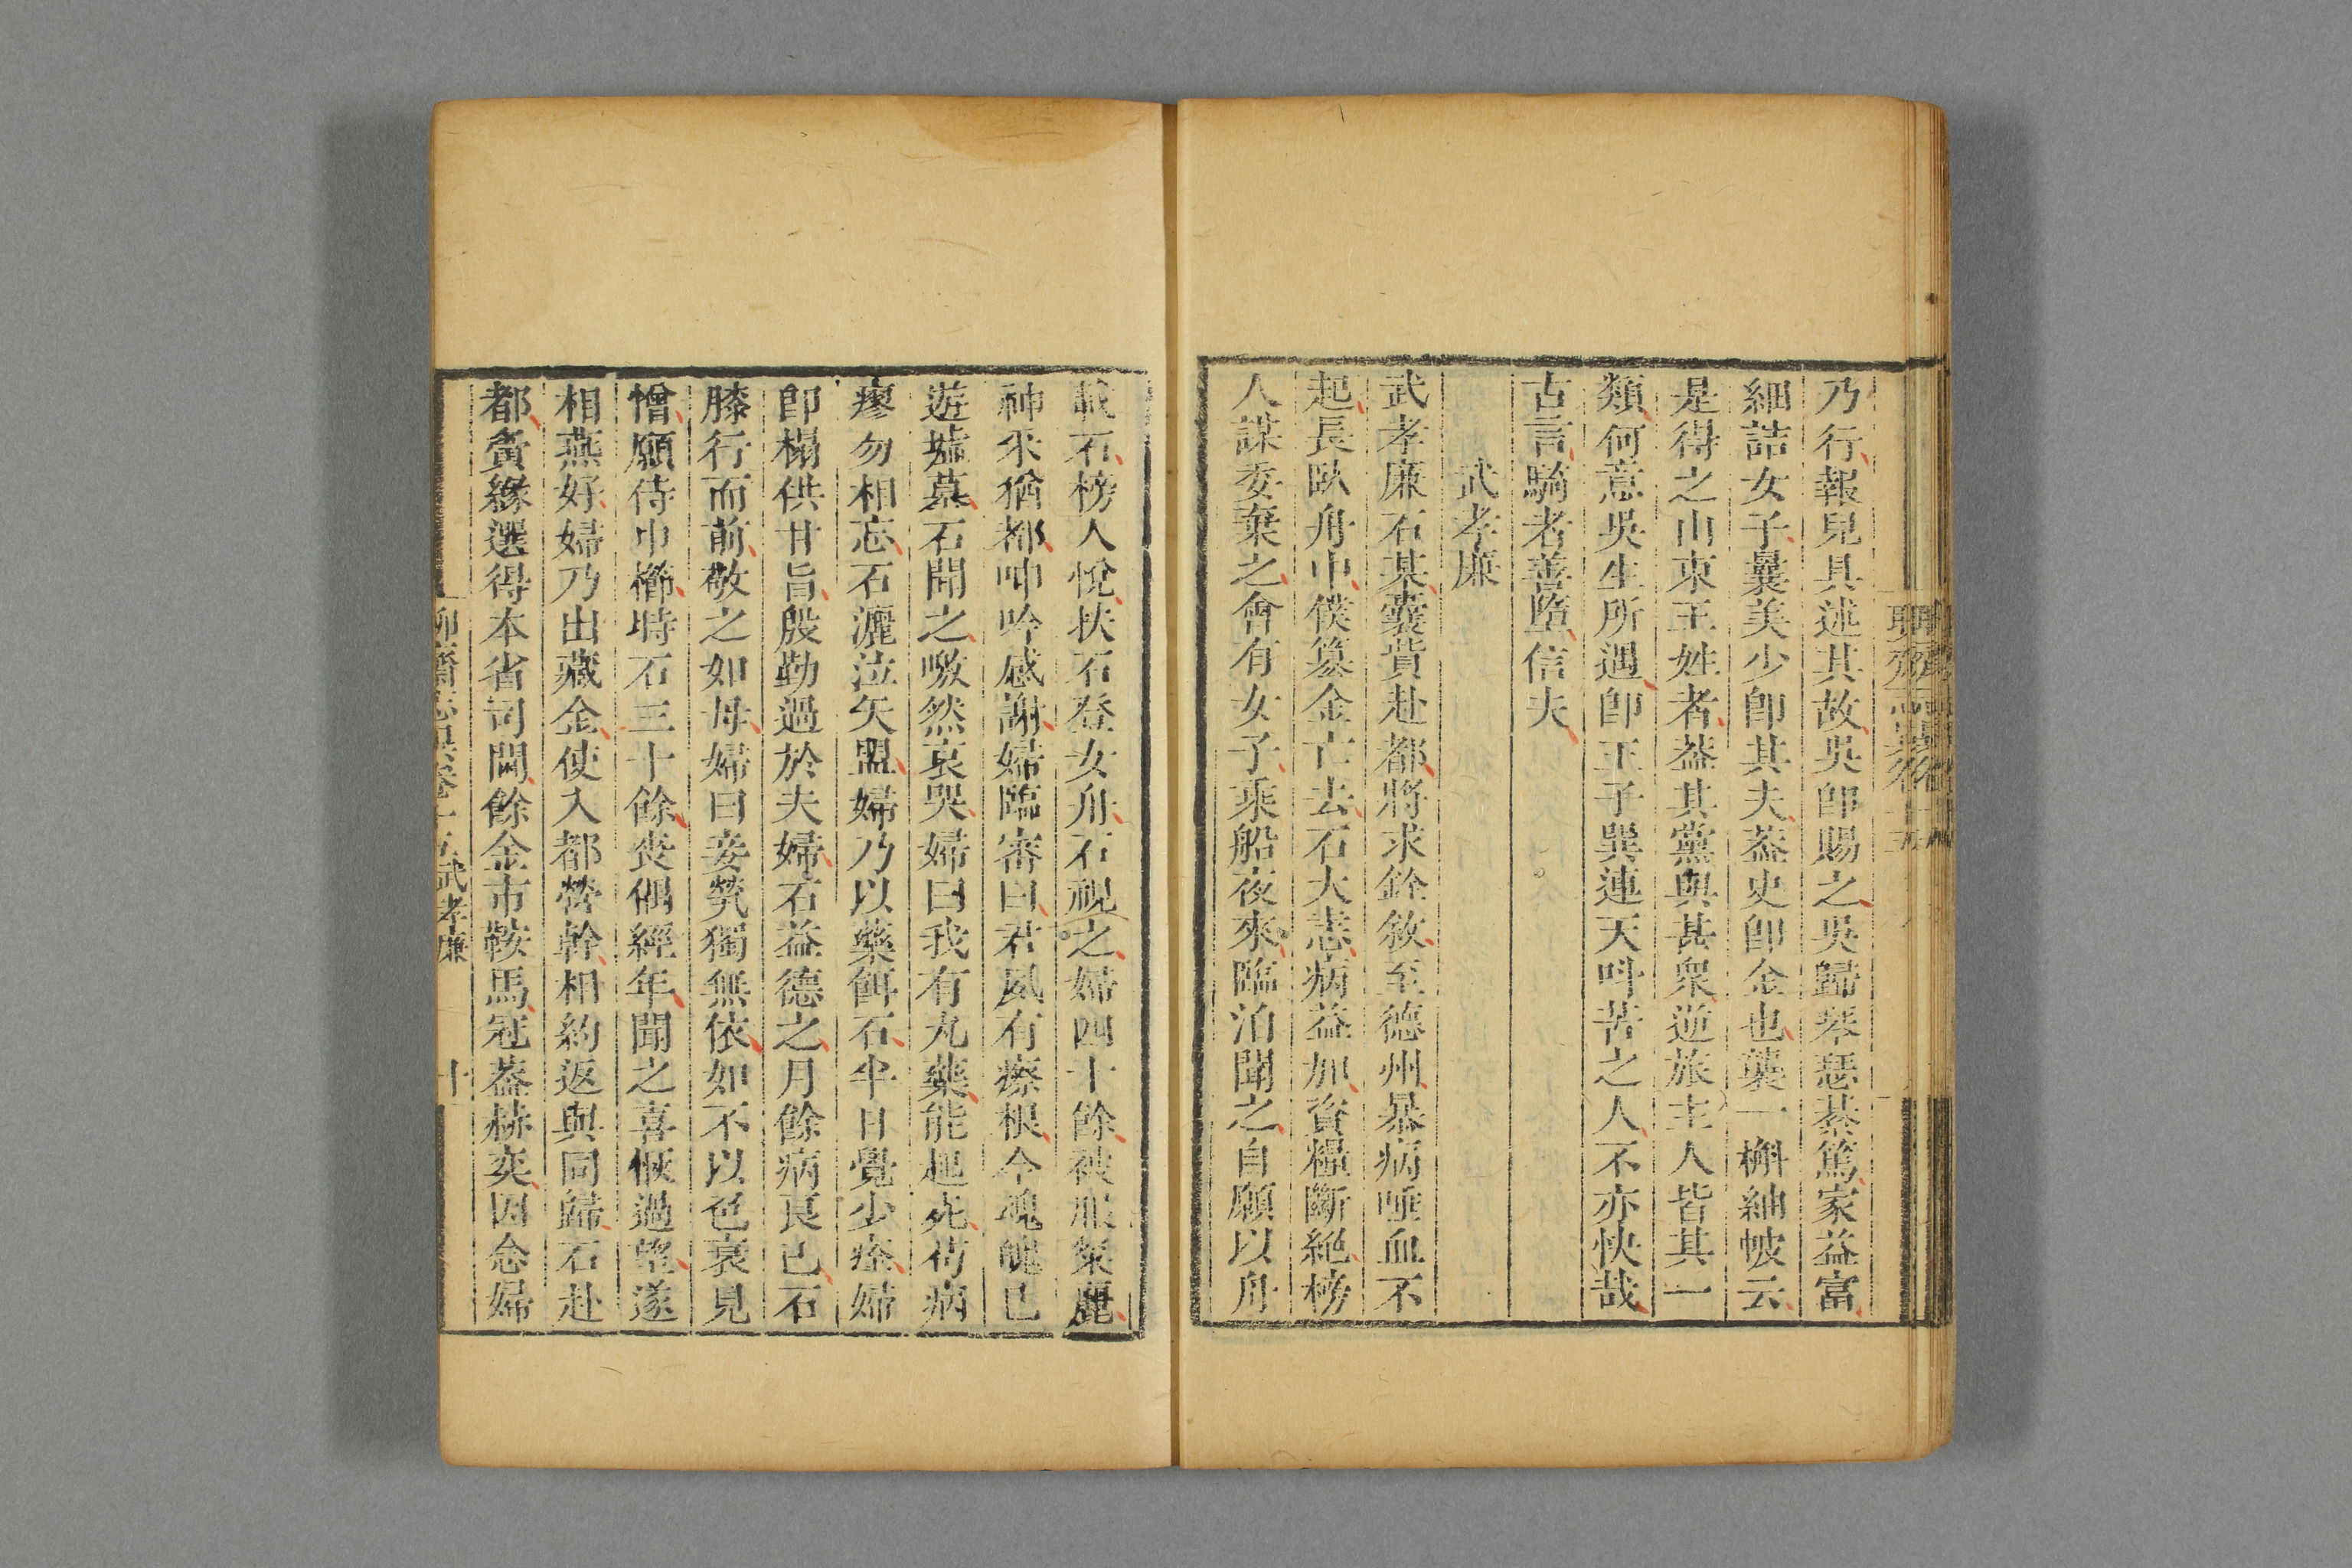 乃行報兒具述其故吳卽賜之吳歸琴瑟綦篤家益富
細詰女子曩美少卽其夫葢史卽金也襲一槲紬帔云
是得之山東王姓者葢其黨與甚衆逆旅主人皆其一
類何意吳生所遇卽王子巽連天呌苦之人不亦快哉
古言騎者善墮信夫
武孝廉
武孝廉石某囊貲赴都將求銓敘至德州暴病唾血不
起長臥舟中僕篡金亡去石大恚病益加資糧斷絕榜
人謀委棄之會有女子乘船夜來臨泊聞之自願以舟
載石榜人悅扶石登女舟石視之婦四十餘被服粲麗
神采猶都呻吟感謝婦臨審曰君夙有瘵根今魂魄已
遊墟墓石聞之噭然哀哭婦曰我有丸藥能起死苟病
瘳勿相忘石灑泣矢盟婦乃以藥餌石半日覺少痊婦
卽榻供甘旨殷勤過於夫婦石益德之月餘病良已石
膝行而前敬之如母婦曰妾煢獨無依如不以色衰見
憎願侍巾櫛時石三十餘喪偶經年聞之喜愜過望遂
相燕好婦乃出藏金使入都營幹相約返與同歸石赴
都夤緣選得本省司閫餘金市鞍馬冠葢赫奕因念婦
聊齋志異卷十五 武孝廉 十